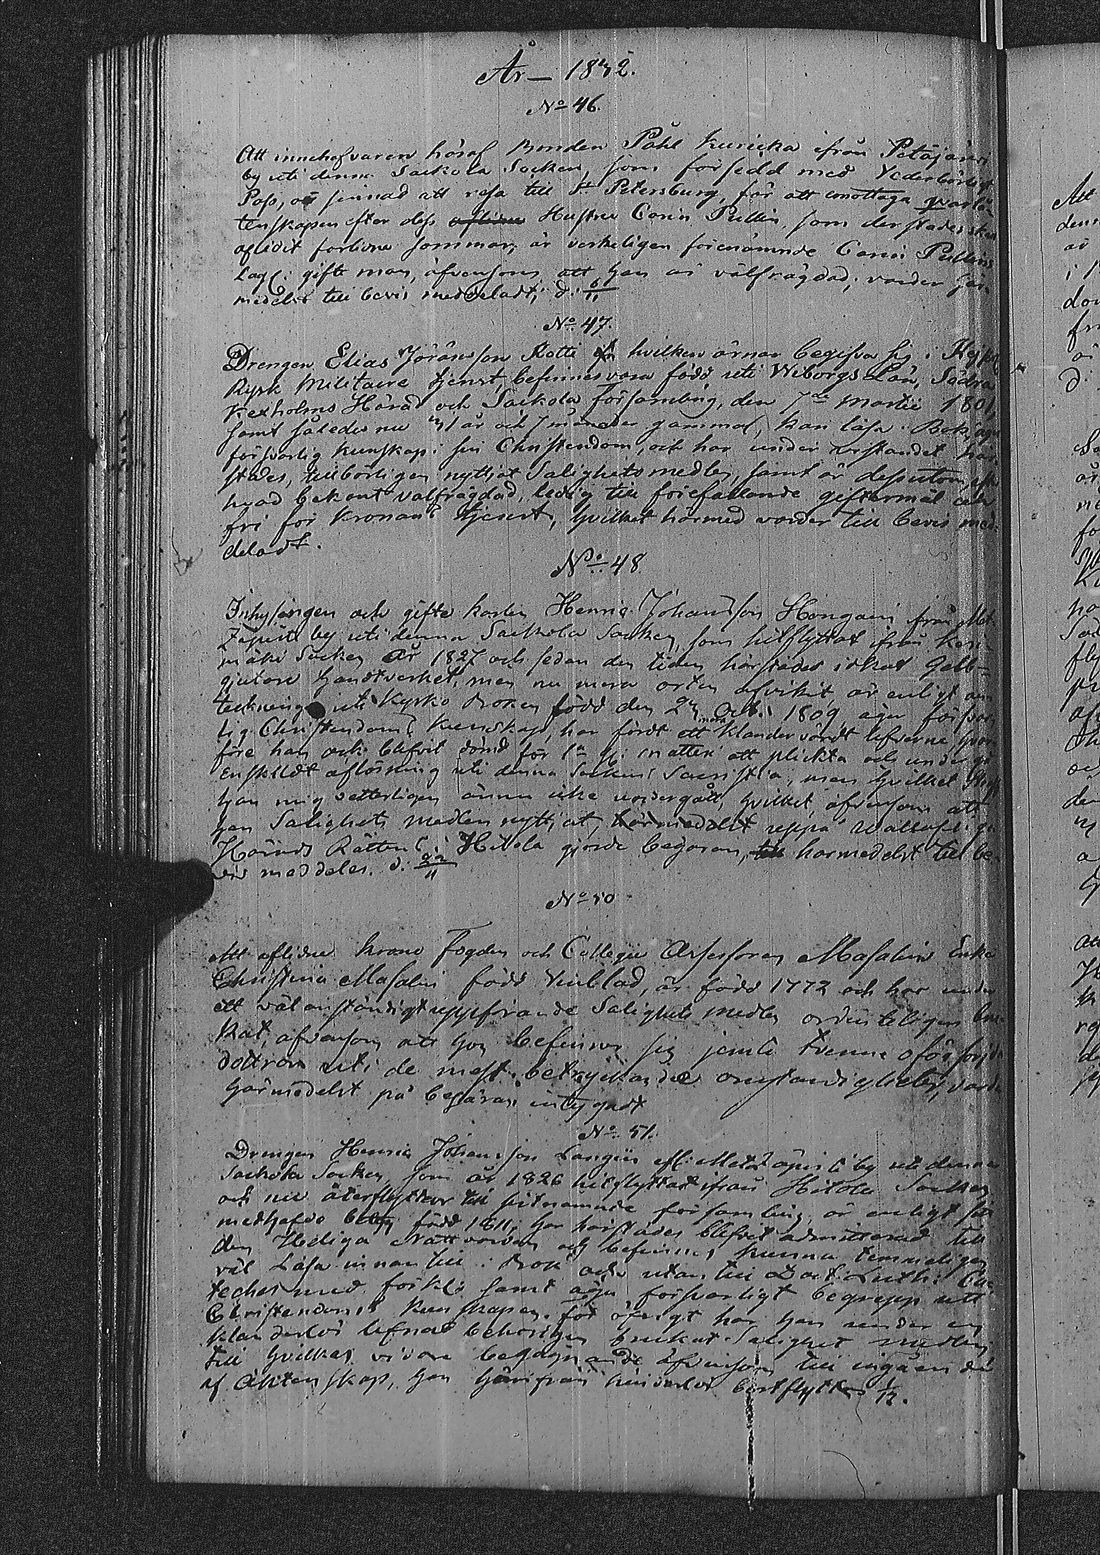 År 1832.
No 46.
Att innehafvaren häraf Bonden Påhl Kurikka ifrån Petäjärvi
by uti denna Sackola Socken, som försedd med Vederbörligt
Pass, är sinnad att resa till St Petersburg, för att emottaga
efter dess Hustru Carin Pullin, som derstädes
aflidit förlidne sommar, är verkeligen förenämnde Carin Pullins
Lagl. gifte man, äfvensom att han är välfrägdad; varder här
medelst till bevis meddeladt; d. 6/11
No 47.
Drengen Elias Jöransson Kotti hvilken ärnar begifva sig i
Rysk Militaire tjenst befinnes vara född uti Wiborgs Län, Södra
Kexholms Härad och Sackola Församling, den 7de Martii 1801
samt således nu 31 år och 7 månader gammal, kan läsa i Bok, äger
försvarlig kunskap i sin Christendom, och har under vistandet här
städes, tillbörligen nyttjat Salighetsmedlen, samt är dessutom
hvad bekant välfrägdad, ledig till förefallande giftermål och
fri för Kronans tjenst, hvilket härmed varder till bevis med
deladt.
No 48.
Inhysingen och gifte karlen Henric Johansson Hongain från
by uti denna Sackola Socken, som hitflyttat från
mäki Socken År 1827 och sedan den tiden härstädes idkat Gelb-
gjutare handtverket, men nu mera orten afvikit är enligt an
teckning uti Kyrko Boken född den Octb. 1809, äger försvar
lig Christendoms kunskap, har fördt ett klandervärdt lefverne, hvar
före han ock blifvit dömd för att plickta och undergå
Enskildt aflösning uti denna Sockens Sacristia, men hvilket
han mig vetterligen ännu icke undergått, hvilket äfvensom att
han Salighets medlen nyttjat, uppå
Härads Rättens i Hitola gjorde begäran, härmedelst till be
vis meddelas. d. 22/11
No 50
Att aflidne Krono Fogden och Collegii Assessoren Masalins Enka
Christina Masalin född Vinblad, är född 1772 och har under
ett välanständigt uppförande Salighets medlen ordenteligen bru
kat, äfvensom att hon befinner sig jemte tvenne oförsörjda
döttrar uti de mest betryckande omständigheter, varder
härmedelst på begäran intygadt
No 51.
Drengen Henric Johansson Langin by uti denna
Sackola Socken, som år 1826 hitflyttat ifrån Hitola Socken
och nu återflyttar till bitnämnde församling, är enligt
medhafde född 1811, har härstädes blifvit admitterad till
den Heliga Nattvarden och befinnes kunna temmeligen
väl Läsa innantill i Bok och utantill Doct. Luth. Ca
teches med förkl. samt äga försvarligt begrepp uti
Christendoms kunskapen, för öfrigt har han under en
klanderlös lefnad behörigen brukat Salighets medlen
till hvilkas vidare begagnande äfvensom till ingående
af Äktenskap, han härifrån hinderlös bortflyttar 1/12.